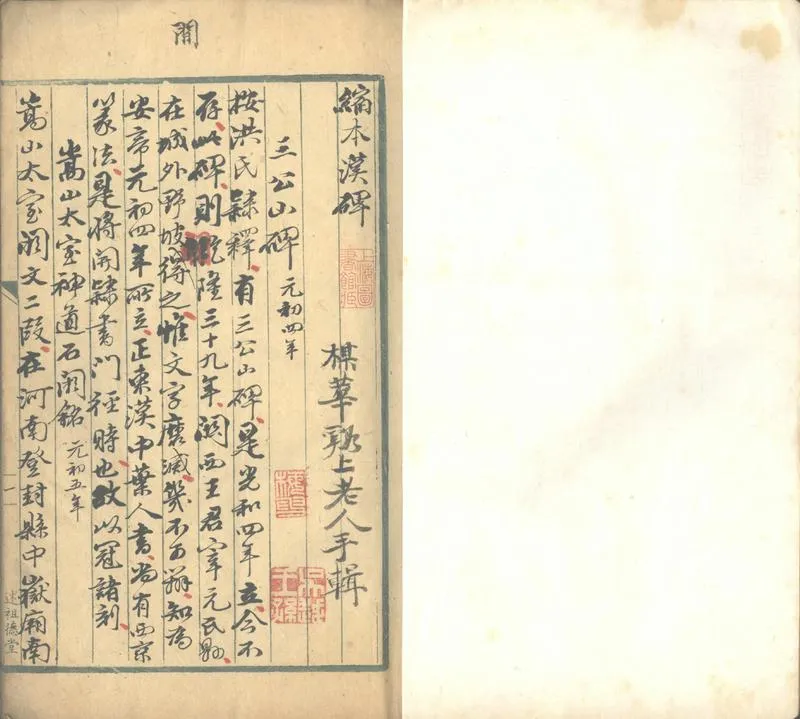 縮本漢碑
上海圖書館藏
楳華谿上老人手輯
吳越王孫
三公山碑 元初四年
按洪氏隸釋、有三公山碑、是光和四年立、今不
存、此碑、則乾隆三十九年、關西王君宰元氏縣、
在城外野坡得之、惟文字磨滅、幾不可辨、知為
安帝元初四年所立、正東漢中葉人書、尚有西京
篆法、是將開隸書門徑時也、故以冠諸刻、
嵩山太室神道石闕銘 元初五年
嵩山太室闕文二段、在河南登封縣中嶽廟南
一
述祖德堂